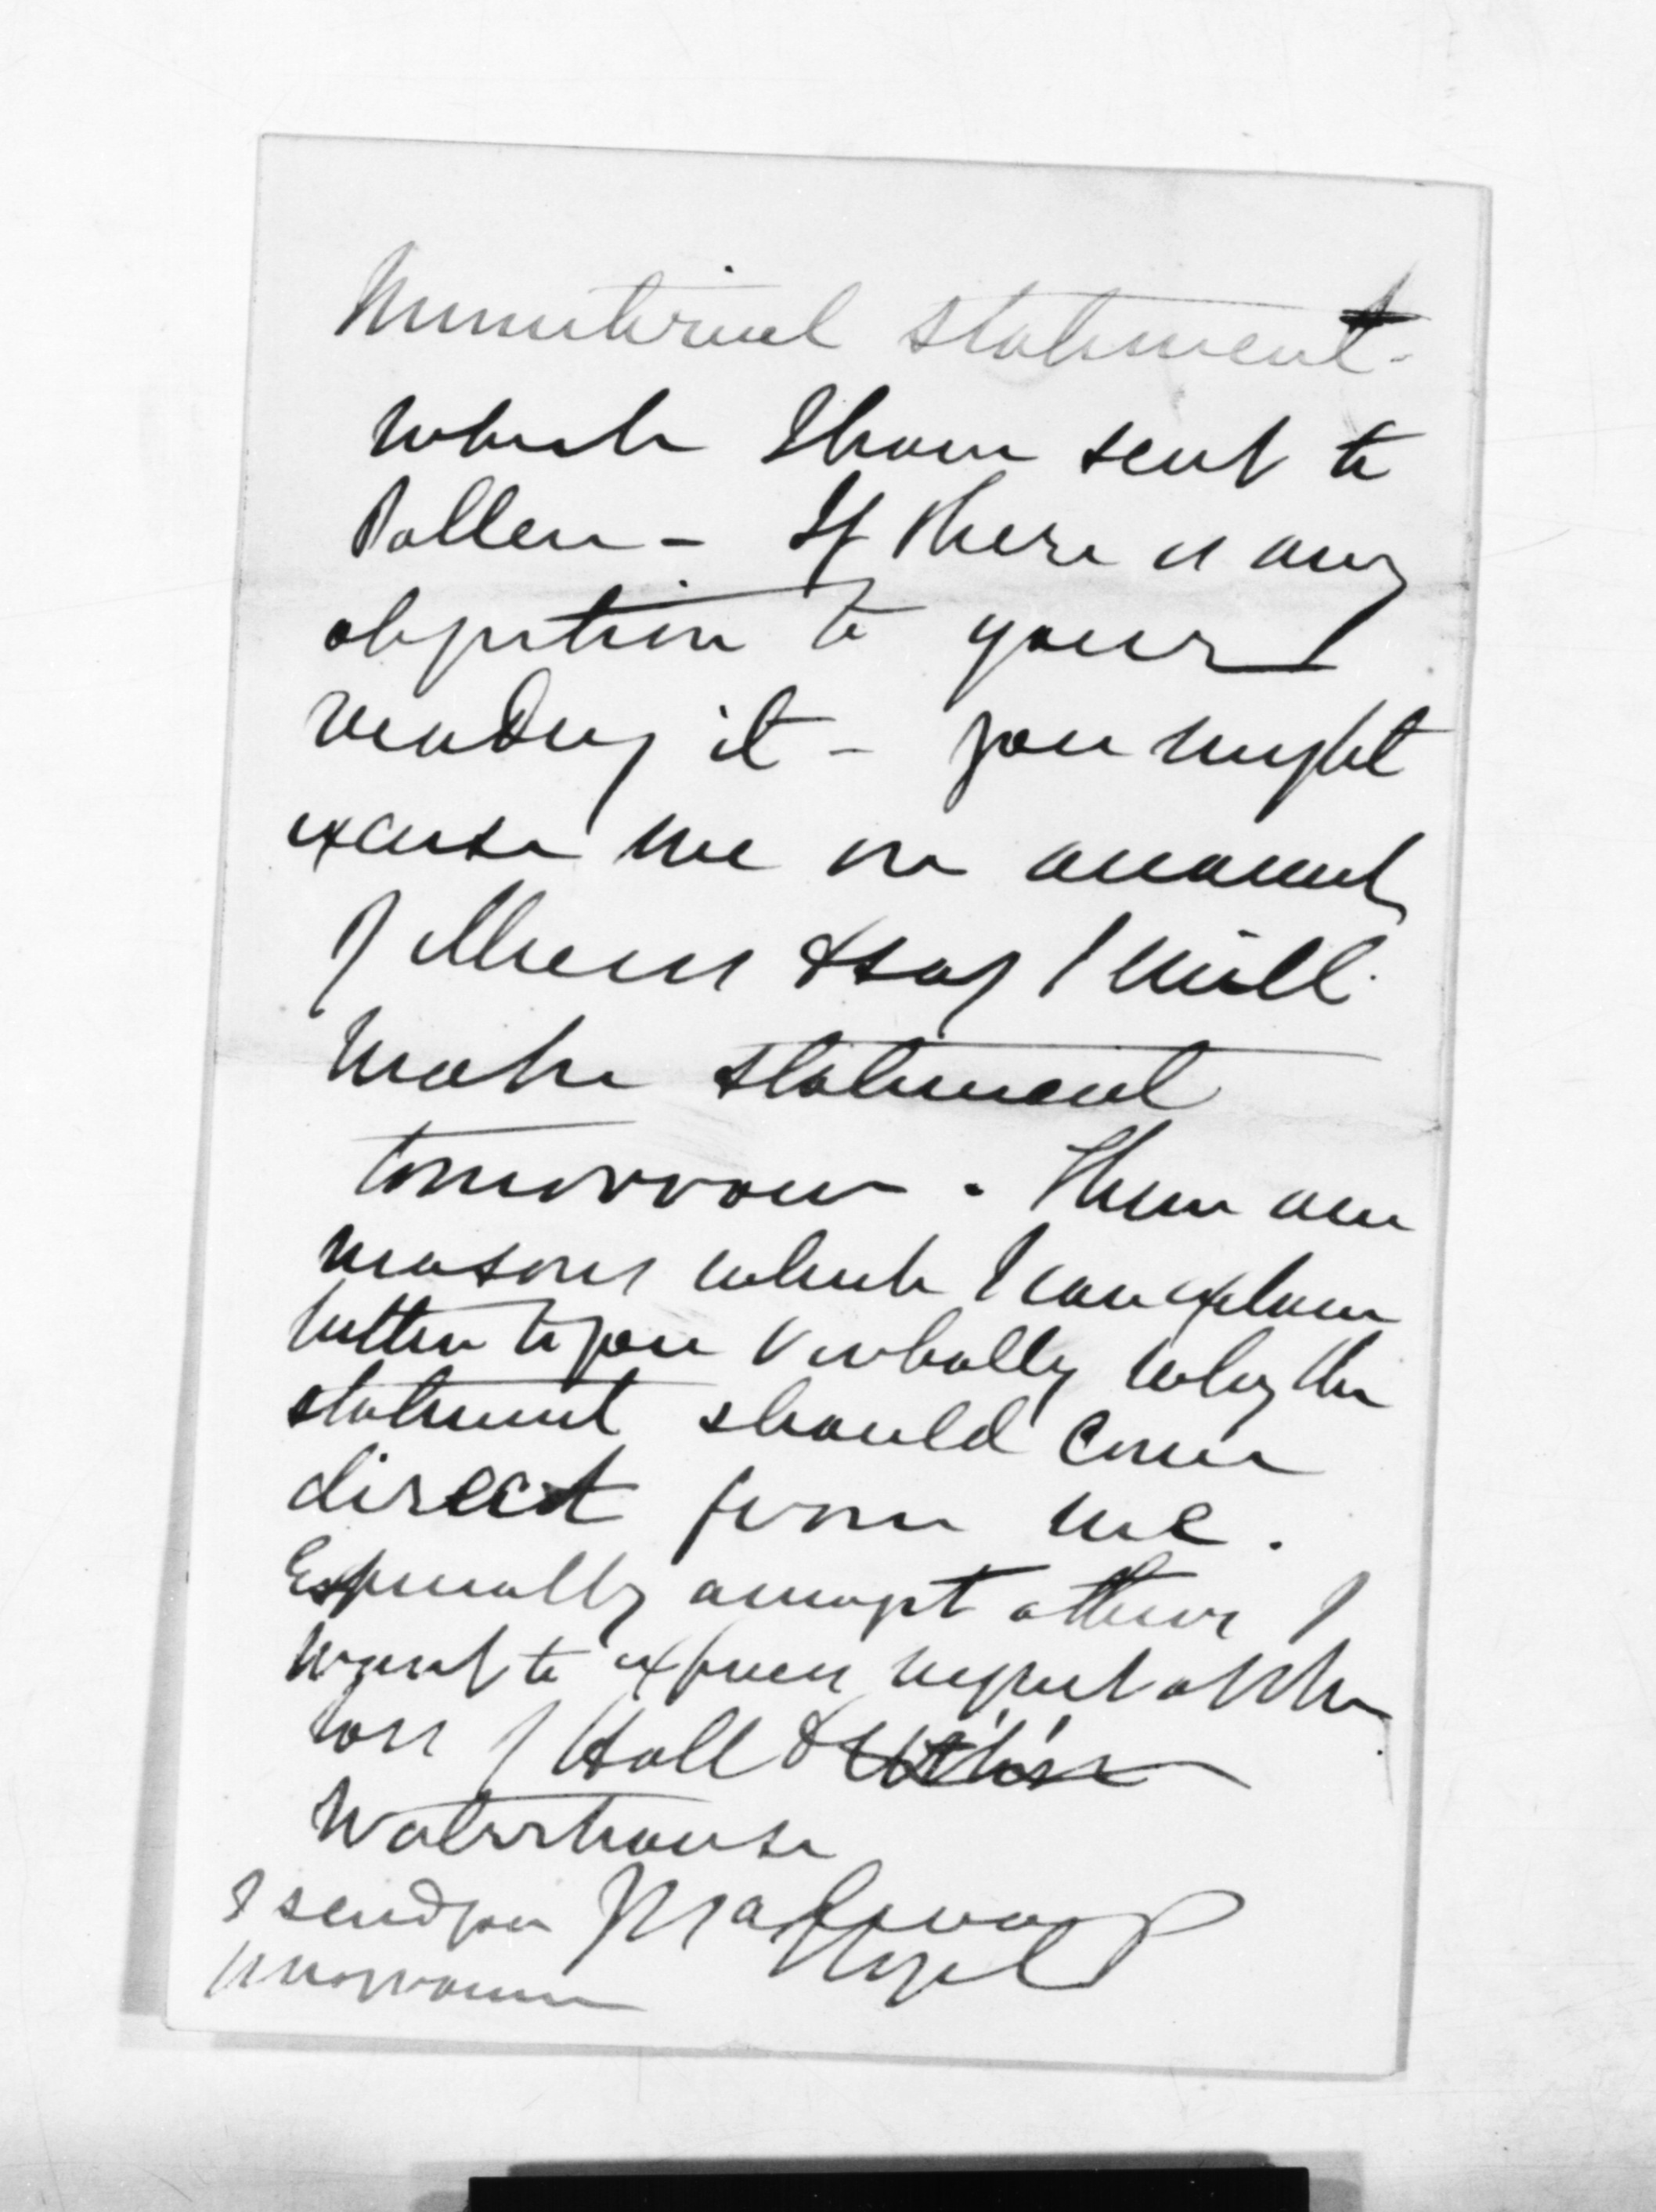 Ministerial statement
which I have sent to
Pollen - If there is any
objection to your
reading it - you might
excuse me on account
of illness & say I will
make statement
tomorrow. There are
reasons which I can explain
better to you verbally why the
statement should come
direct from me.
Especially amongst others I
want to express regret at the
loss of Hall &
Waterhouse
I send you
tomorrow